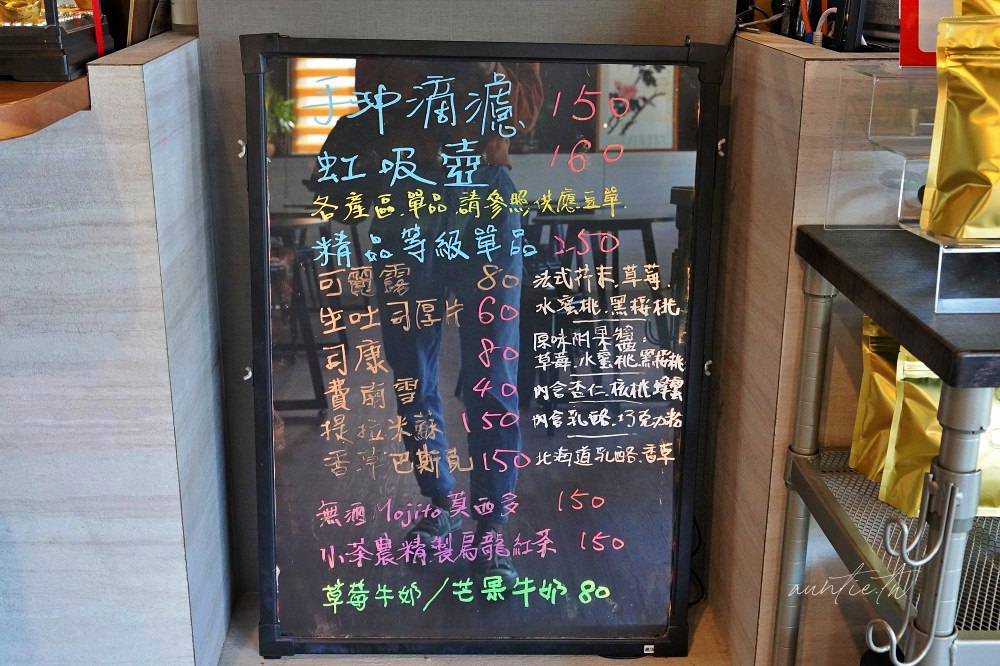 手沖滴濾 150
虹吸壺 160
各產區.單品.請參照供應豆單.
精品等級單品 250
可麗露 80 法式芥末.草莓.
水蜜桃.黑櫻桃
生吐司厚片 60 原味附果醬
司康 80 草莓.水蜜桃.黑櫻桃
費南雪 40 內含杏仁.核桃.蜂蜜
提拉米蘇 150 內含乳酪.巧克力粉
香草巴斯克 150 北海道乳酪.香草
無酒Mojito莫西多 150
小茶農精製烏龍紅茶 150
草莓牛奶/芒果牛奶 80
auntie.th